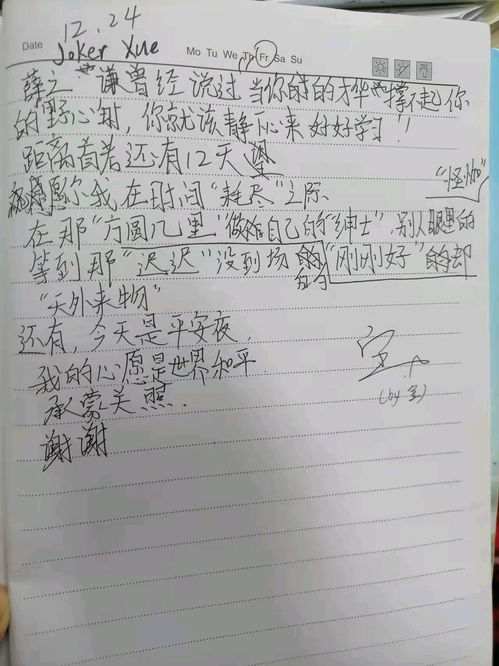 12.24
Date Joker Xue Mo Tu We Th Fr Sa Su
薛之谦曾经说过当你的才华撑不起你
的野心时，你就该静下心来好好学习！
距离首考还有12天
愿你我在时间“耗尽”之际 “怪咖”
在那“方圆几里”做难自己的“绅士”，别人眼里的
等到那“迟迟”没到场的“刚刚好”的却
“天外来物”
还有，今天是平安夜
我的心愿是世界和平
承蒙关照
谢谢
(by 宝)